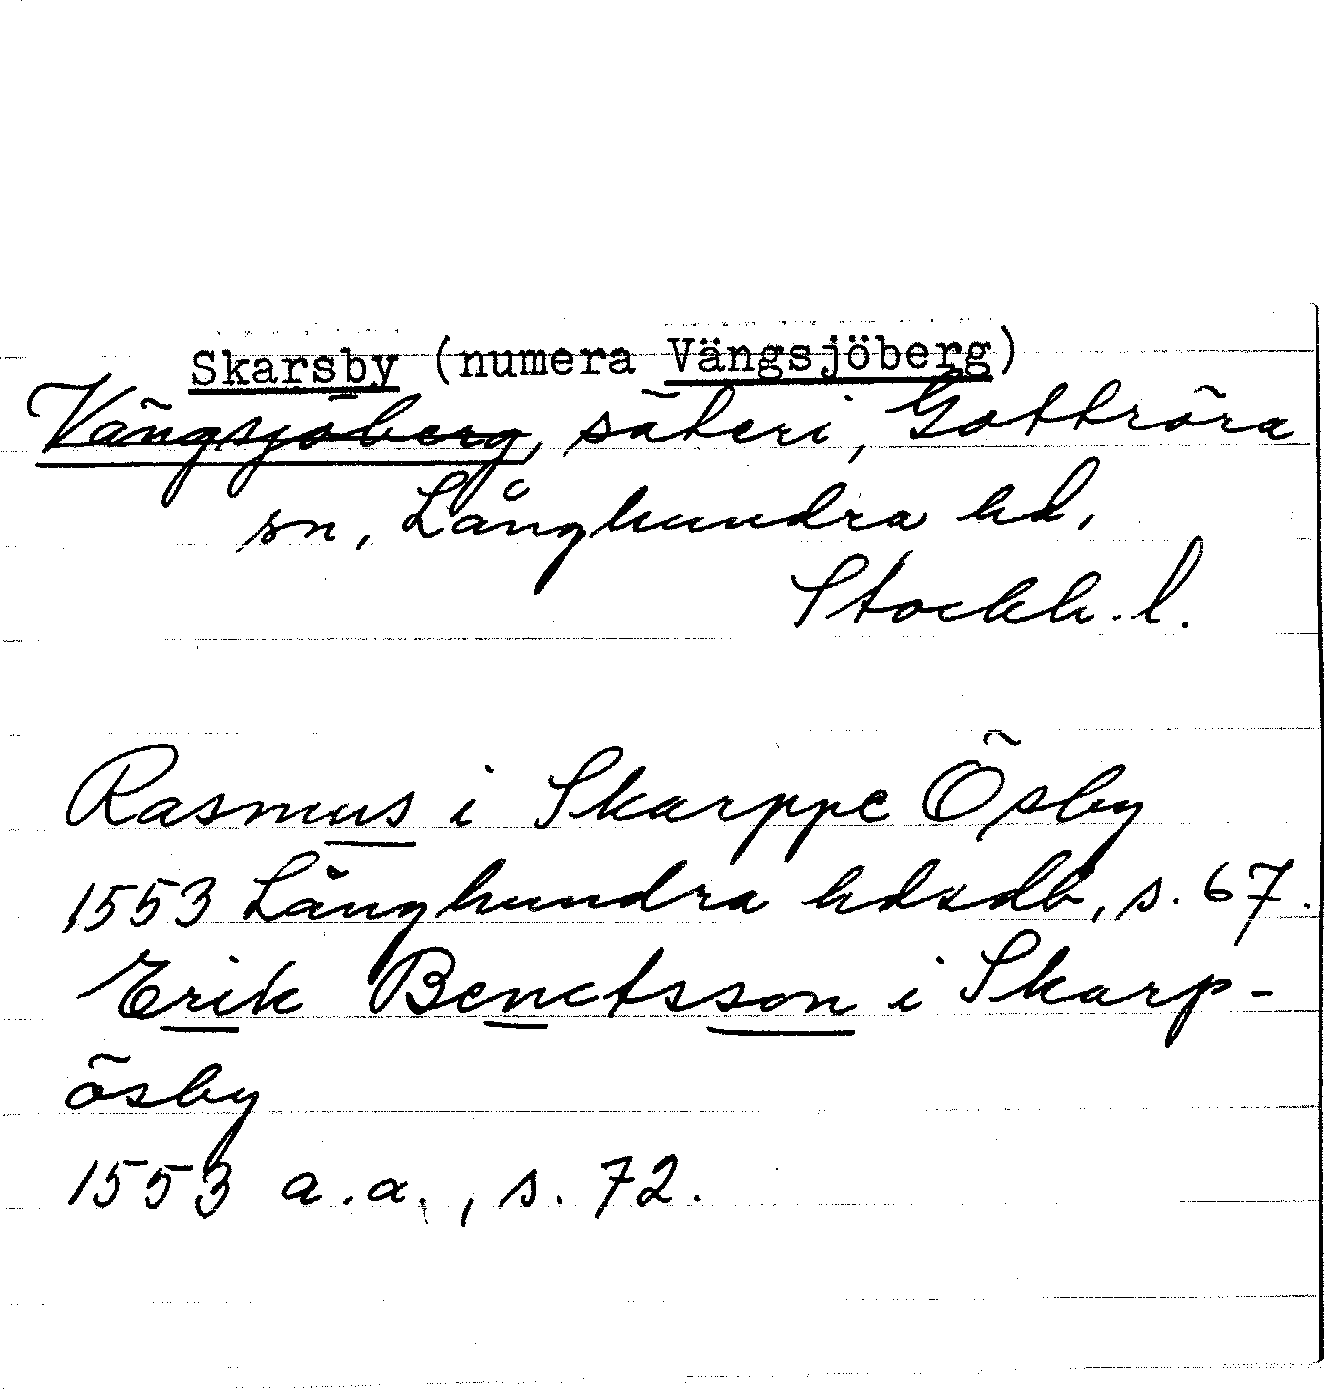 Skarsby (numera Vängsjöberg)
Vängsjöberg, säteri, Gottröra
sn, Långhundra hd,
Stockh. l.
Rasmus i Skarppe Ösby
1553 Långhundra hdsdb, s. 67.
Erik Benctsson i Skarp-
ösby
1553 a.a., s. 72.